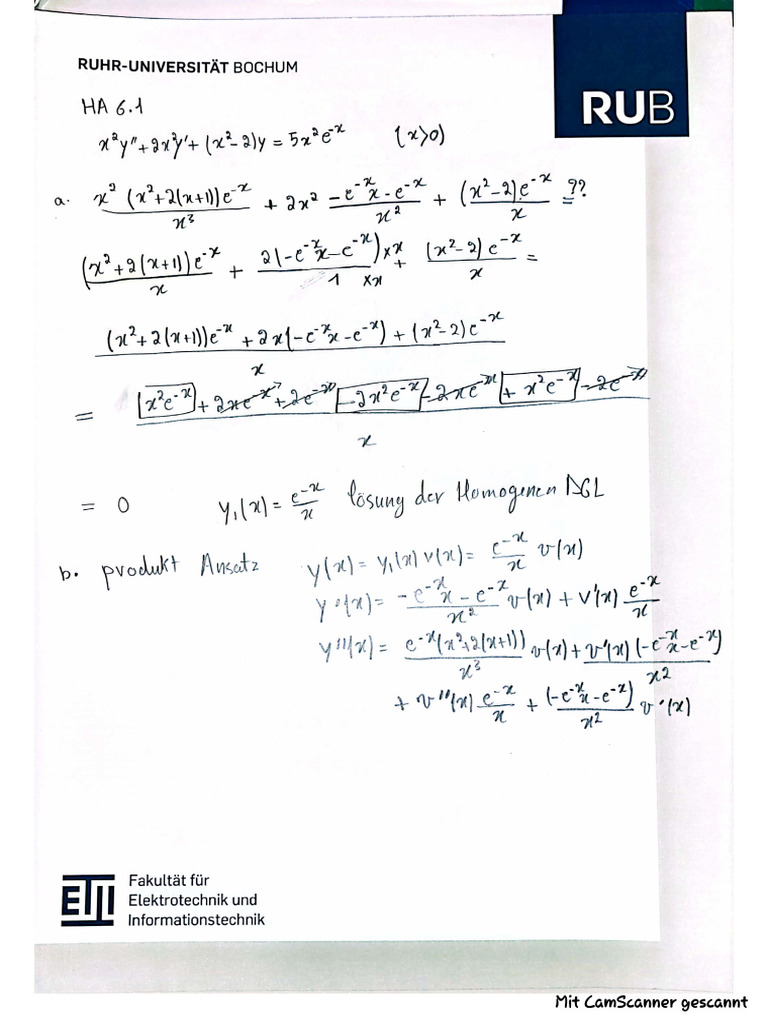 RUHR-UNIVERSITÄT BOCHUM
RUB
HA 6.1
x²y'' + 2x²y' + (x²-2)y = 5x²e^-x (x>0)
a. x² (x²+2(x+1))e^-x / x³ + 2x² -e^-x x - e^-x / x² + (x²-2)e^-x / x = ??
(x²+2(x+1))e^-x / x + 2(-e^-x x - e^-x) / 1 ×x ×x + (x²-2)e^-x / x =
(x²+2(x+1))e^-x + 2x(-e^-x x - e^-x) + (x²-2)e^-x / x
= x²e^-x + 2xe^-x + 2e^-x - 2x²e^-x - 2xe^-x + x²e^-x - 2e^-x / x
= 0 y₁(x) = e^-x / x lösung der Homogenen DGL
b. produkt Ansatz y(x) = y₁(x) v(x) = e^-x / x v(x)
y'(x) = -e^-x x - e^-x / x² v(x) + v'(x) e^-x / x
y''(x) = e^-x (x²+2(x+1)) / x³ v(x) + v'(x) (-e^-x x - e^-x) / x²
+ v''(x) e^-x / x + (-e^-x x - e^-x) / x² v'(x)
ETIT
Fakultät für
Elektrotechnik und
Informationstechnik
Mit CamScanner gescannt